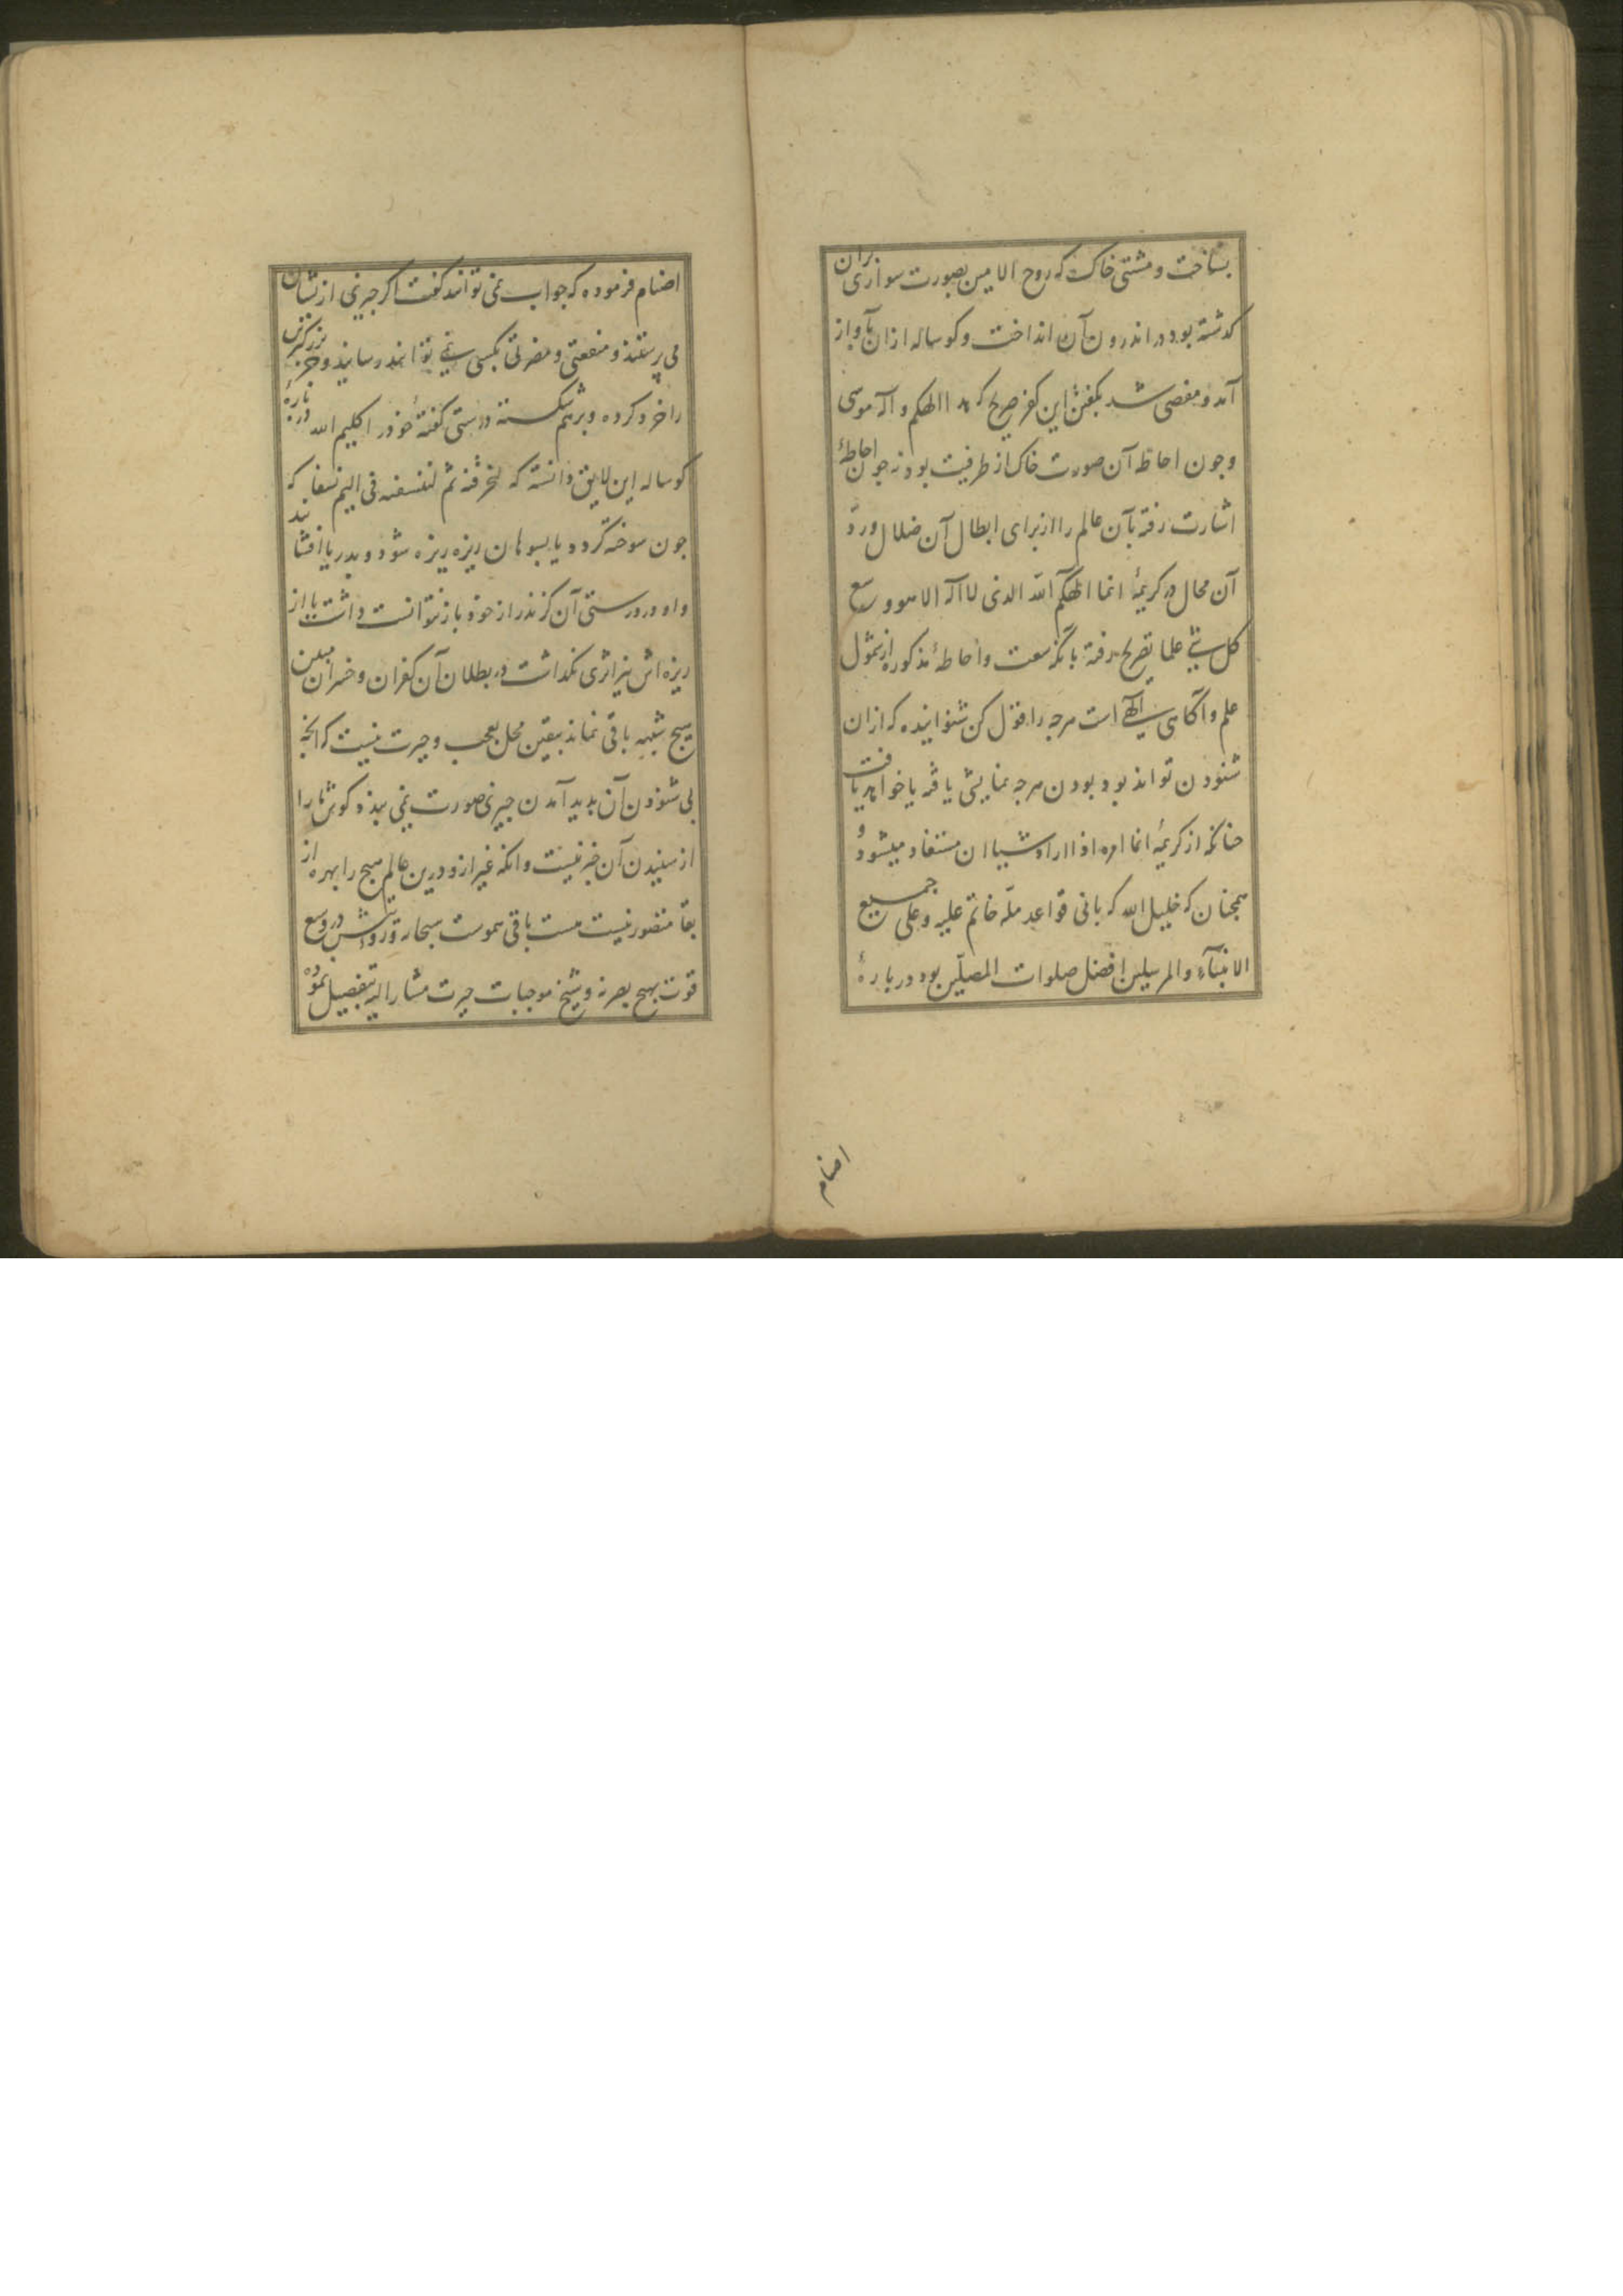 بساخت و مشتی خاک که روح الامین بصورت سواری بران
کدشته بود در اندرون آن انداخت و کوساله ازان بآواز
آمد و مفضی شد بکفتن این کفر صریح که هذا الهکم و اله موسی
و چون احاطه آن صورت خاک از طرفیت بود نه چون احاطهٔ
اشارت رفته بآن عالم را از برای ابطال آن ضلال و ردّ
آن محال در کریمهٔ انما الهکم الله الذی لا اله الا هو وسع
کل شی علما تصریح رفته بانکه سعت و احاطهٔ مذکوره از شمول
علم و آکاهی الهی است هرچه را قول کن شنوانیده که ازان
شنودن تواند بود بودن هرچه نمایشی یافته یا خواهد یافت
چنانکه از کریمهٔ انما امره اذا اراد شیا ان مستفاد میشود و
همچنان که خلیل الله که بانی قواعد ملّه خاتم علیه و علی جمیع
الانبیآء و المرسلین افضل صلوات المصلّین بود در بارهٔ
اصنام
اصنام فرموده که جواب نمی توانند کفت اکر چیزی ازیشان
می پرستند و منفعتی و مضرتی بکسی نمی توانند رسانید و جز بزرکترین
را خرد کرده و برهم شکسته درستی کفتهٔ خود را کلیم الله در بارهٔ
کوساله این لایق دانسته که لنحرقنه ثم لننسفنه فی الیم نسفا که
چون سوخته کردد یا بسوهان ریزه ریزه شود و بدریا افشانند
و او درستی آن کزند را از خود باز نتوانست داشت یا از
ریزه اش نیز اثری نکذاشت در بطلان آن کفران و خسران مبین
هیچ شبهه باقی نماند بیقین محل تعجب و حیرت نیست که انچه
بی شنودن آن پدید آمدن چیزی صورت نمی بندد کوشها را
از شنیدن آن خبر نیست و انکه غیر ازو درین عالم هیچ را بهره از
بقا متصور نیست هست باقی هموست سبحانه و رویتش در وسع
قوت هیچ بصر نه و شیخ موجبات حیرت مشار الیه بتفصیل نموده